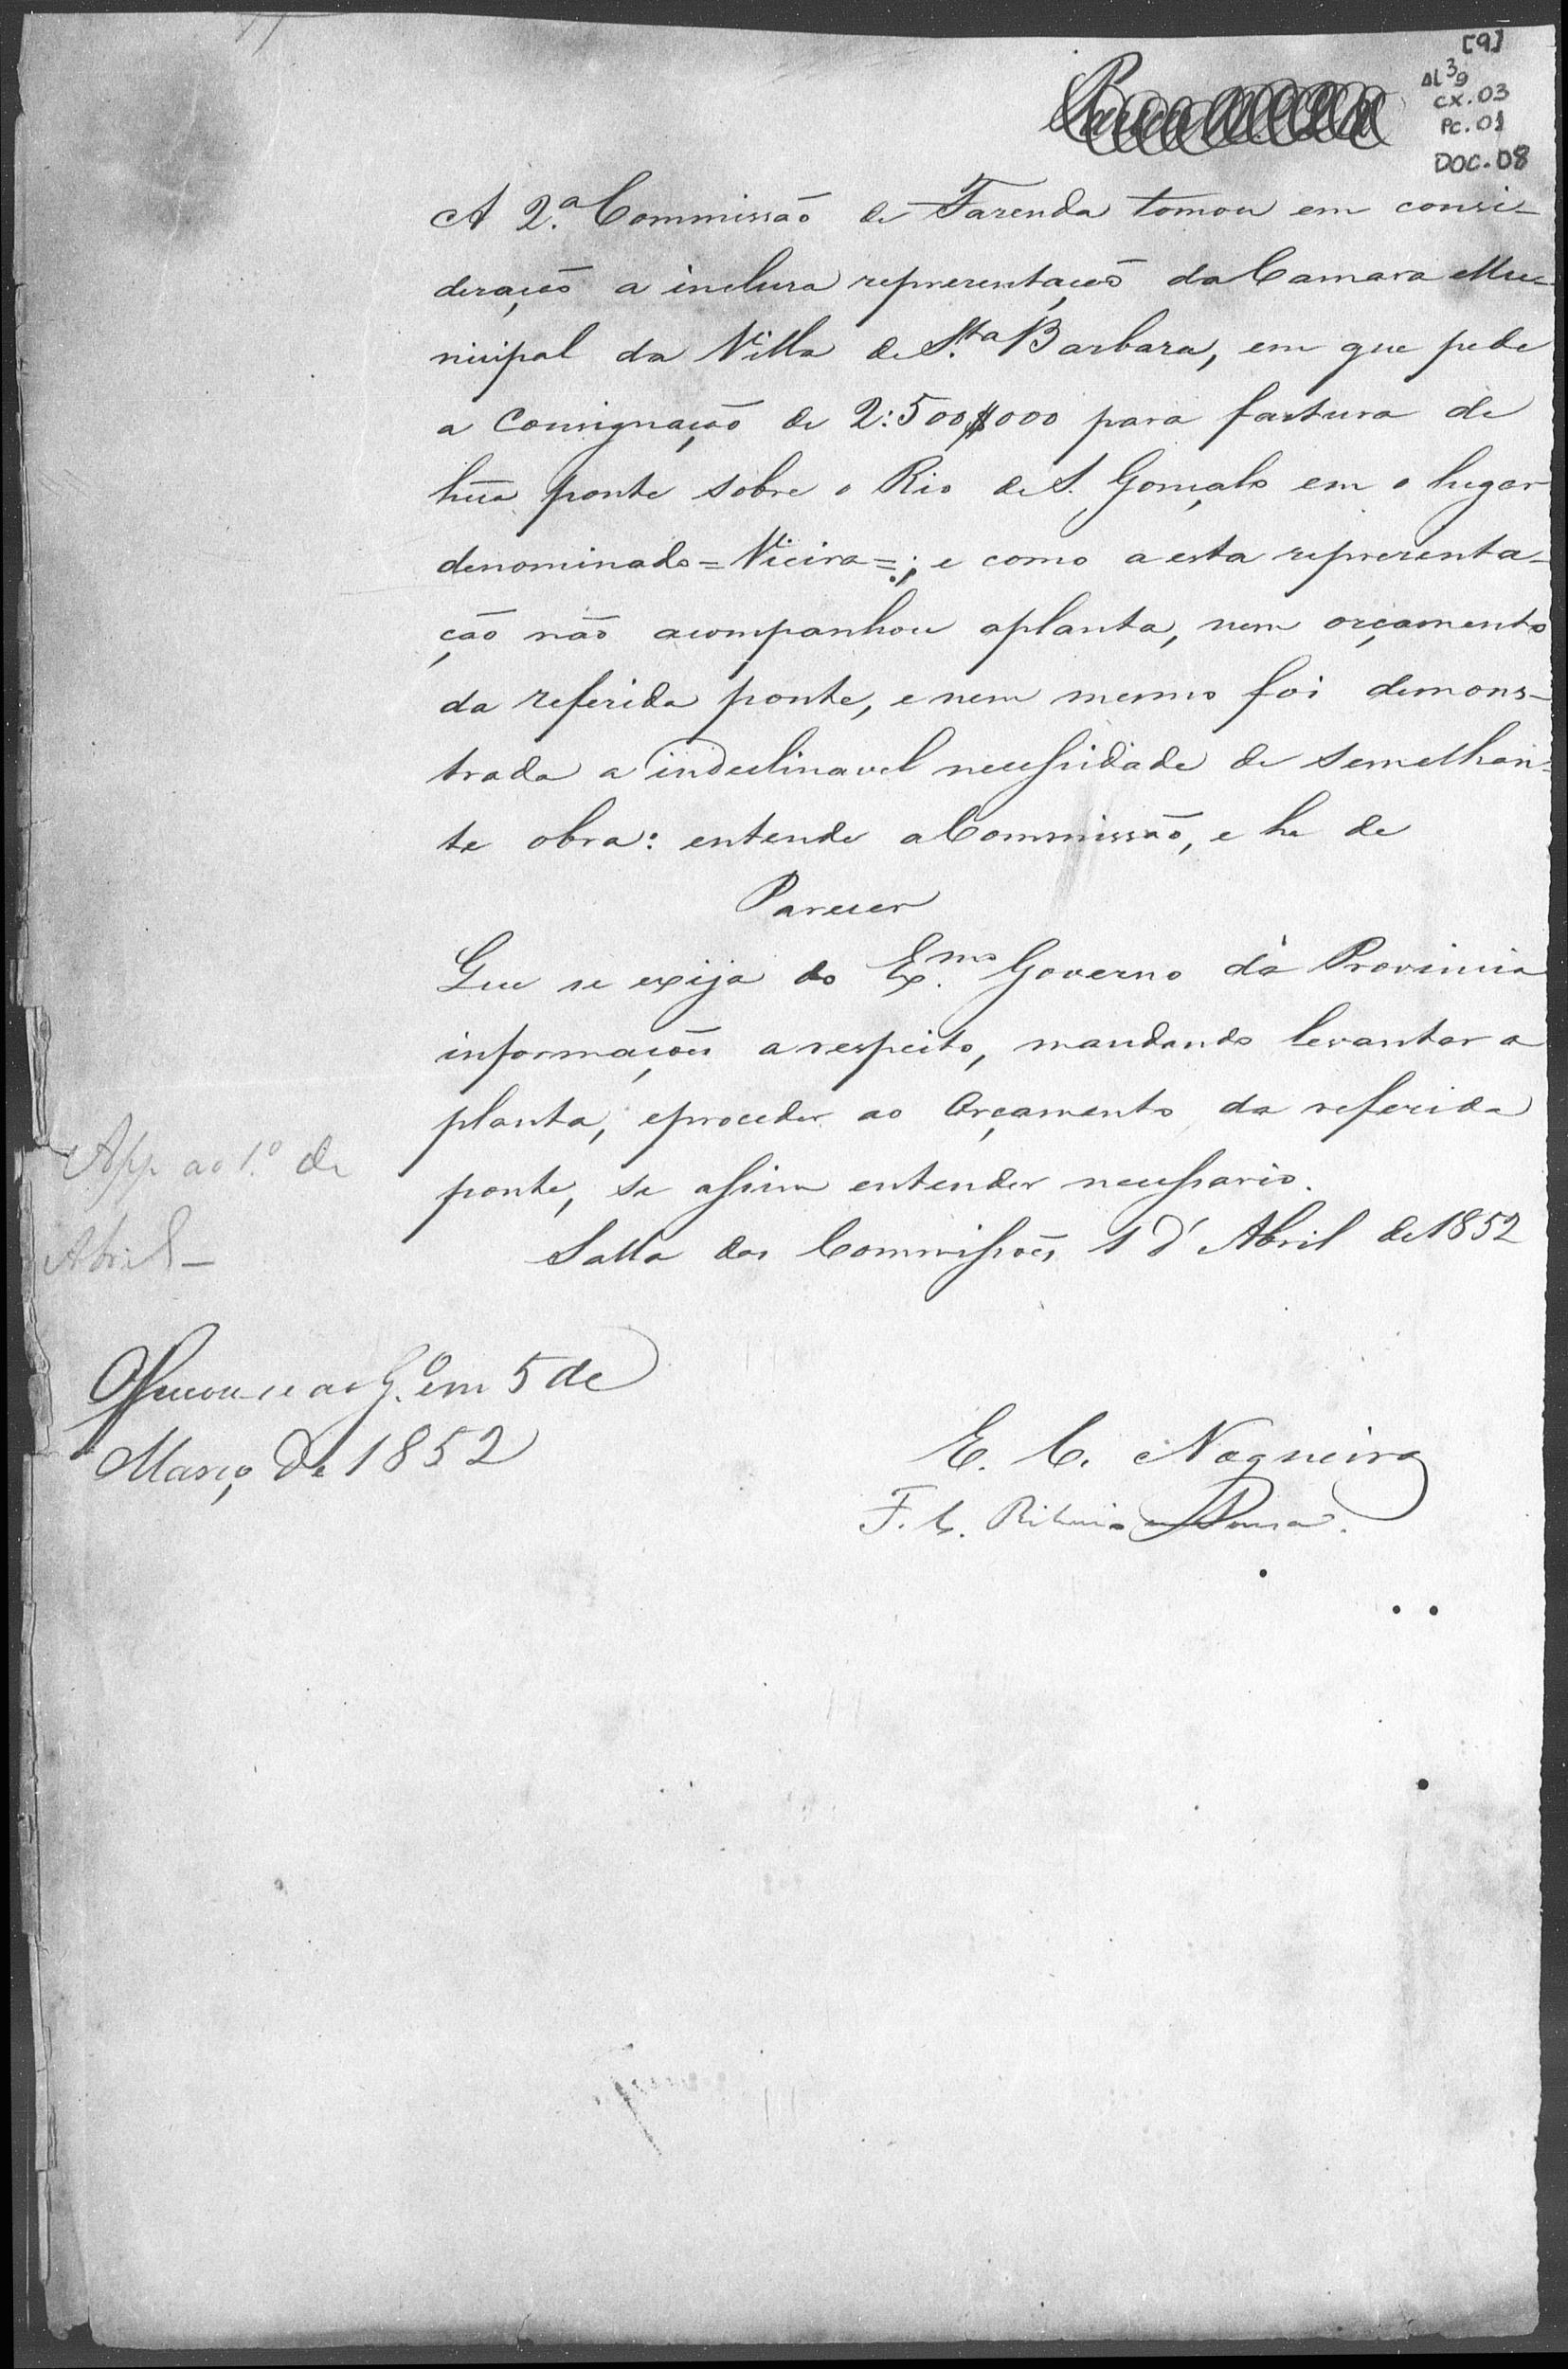 [9]
AL 39
CX.03
PC.01
DOC.08
A 2.ª Commissão de Fazenda tomou em consi-
deração a inclusa representação da Camara Mu-
nicipal da Villa de S.ta Barbara, em que pede
a Consignação de 2:500$000 para factura de
hũa ponte sobre o Rio de S. Gonçalo em o lugar
denominado=Vieira=; e como a esta representa-
ção não acompanhou aplanta, nem orçamento
da referida ponte, e nem mesmo foi demons-
trada a indeclinavel necessidade de semelhan-
te obra: entende a Commissão, e he de
Parecer
Que se exija do Ex.mo Governo da Provincia
informações a respeito, mandando levantar a
planta, eproceder ao Orçamento da referida
ponte, se assim entender necessario.
Salla das Commissões 1 d'Abril de 1852
App ao 1.º de
Abril-
Officiou-se ao G.º em 5 de
Março de 1852
E. C. Nogueira
F. C. Ribeiro